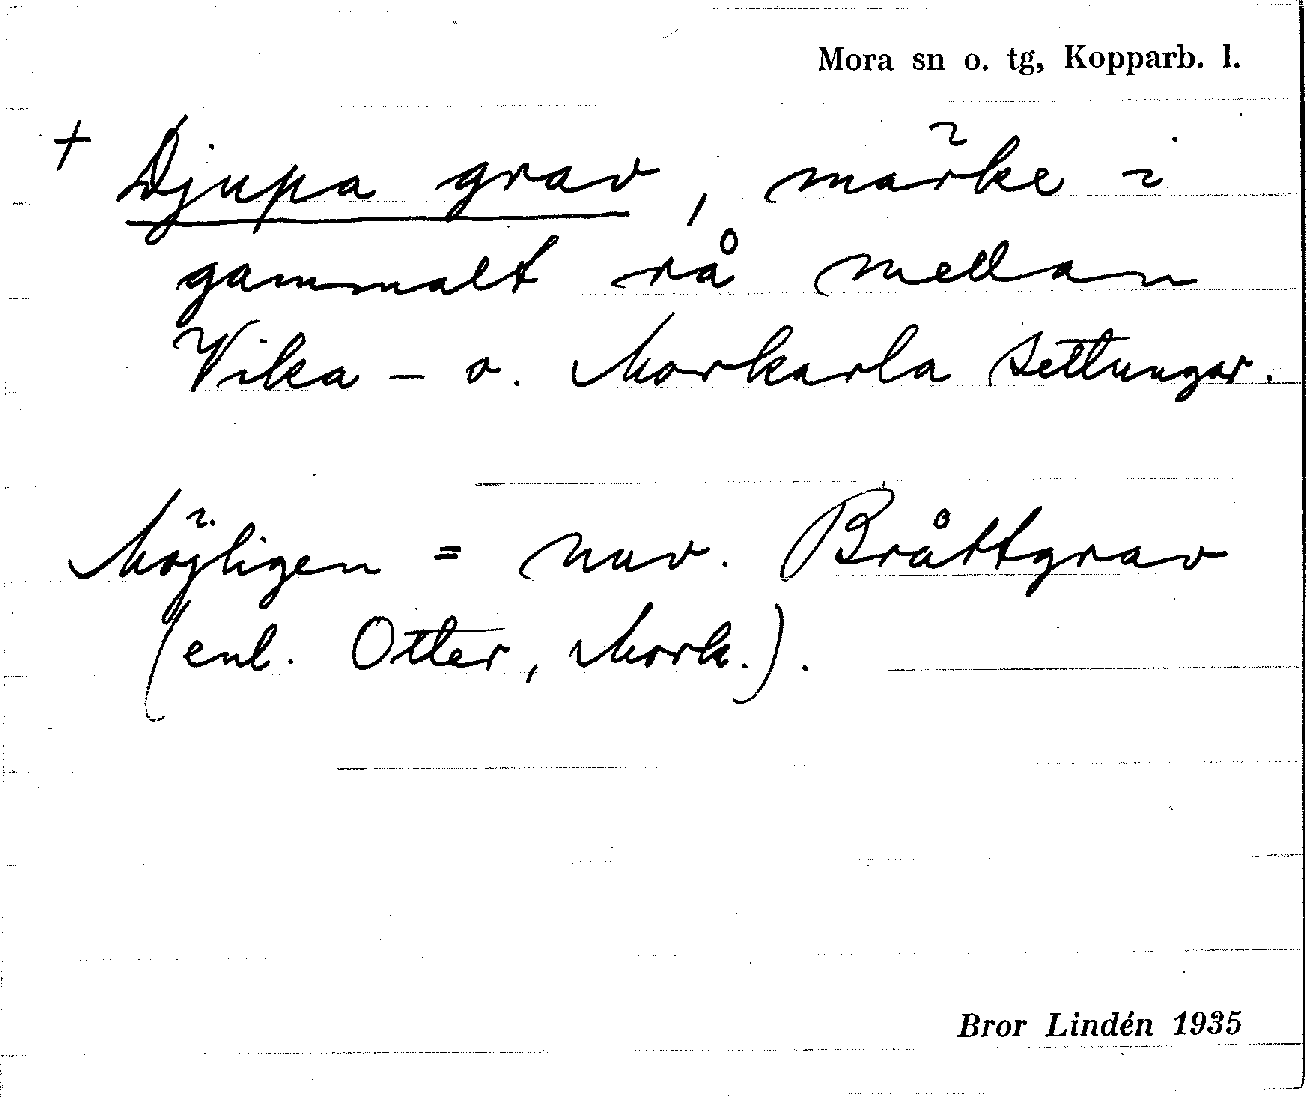 Mora sn o. tg, Kopparb. l.
+ Djupa grav, märke i
gammalt rå mellan
Vika- o. Morkarla settungar.
Möjligen = nuv. Bråttgrav
(enl. Otter, Mork.).
Bror Lindén 1935